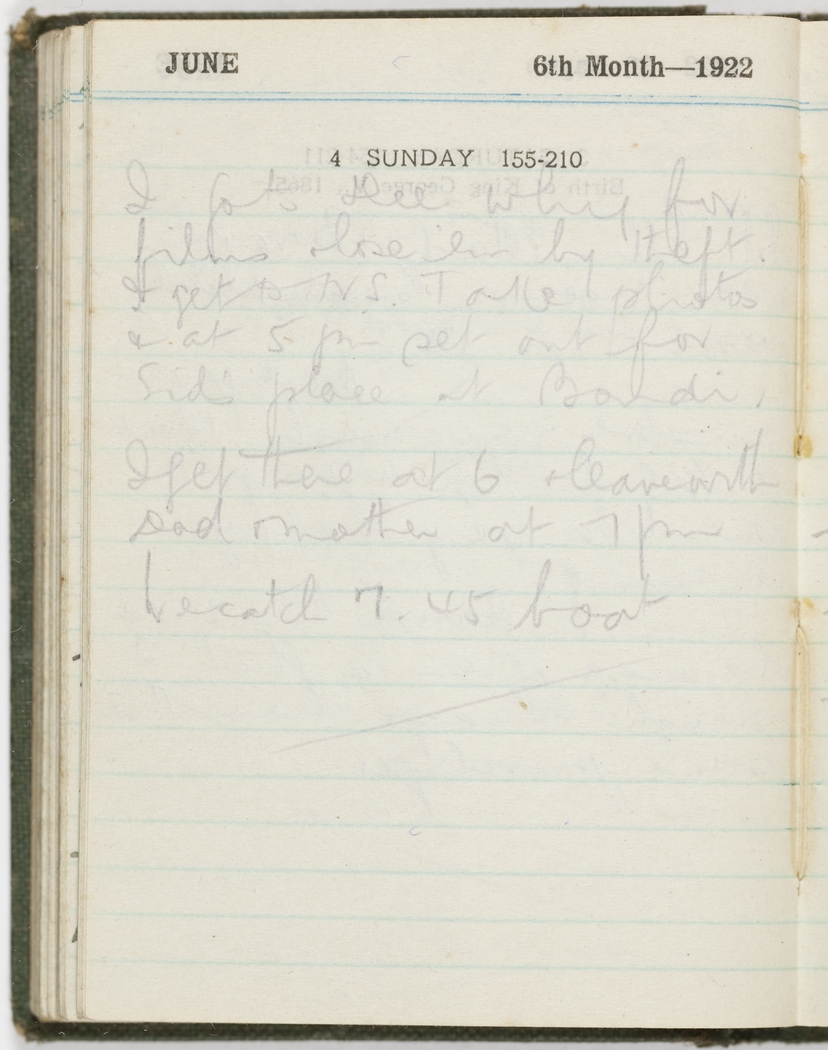 JUNE 6th Month—1922
4 SUNDAY 155-210
I go to see Whip for
films & lose 'em by theft.
I get to N.S. Take photos
& at 5 pm set out for
Sid's place at Bondi.
I get there at 6 & leave with
Dad & mother at 7 pm
We catch 7.45 boat